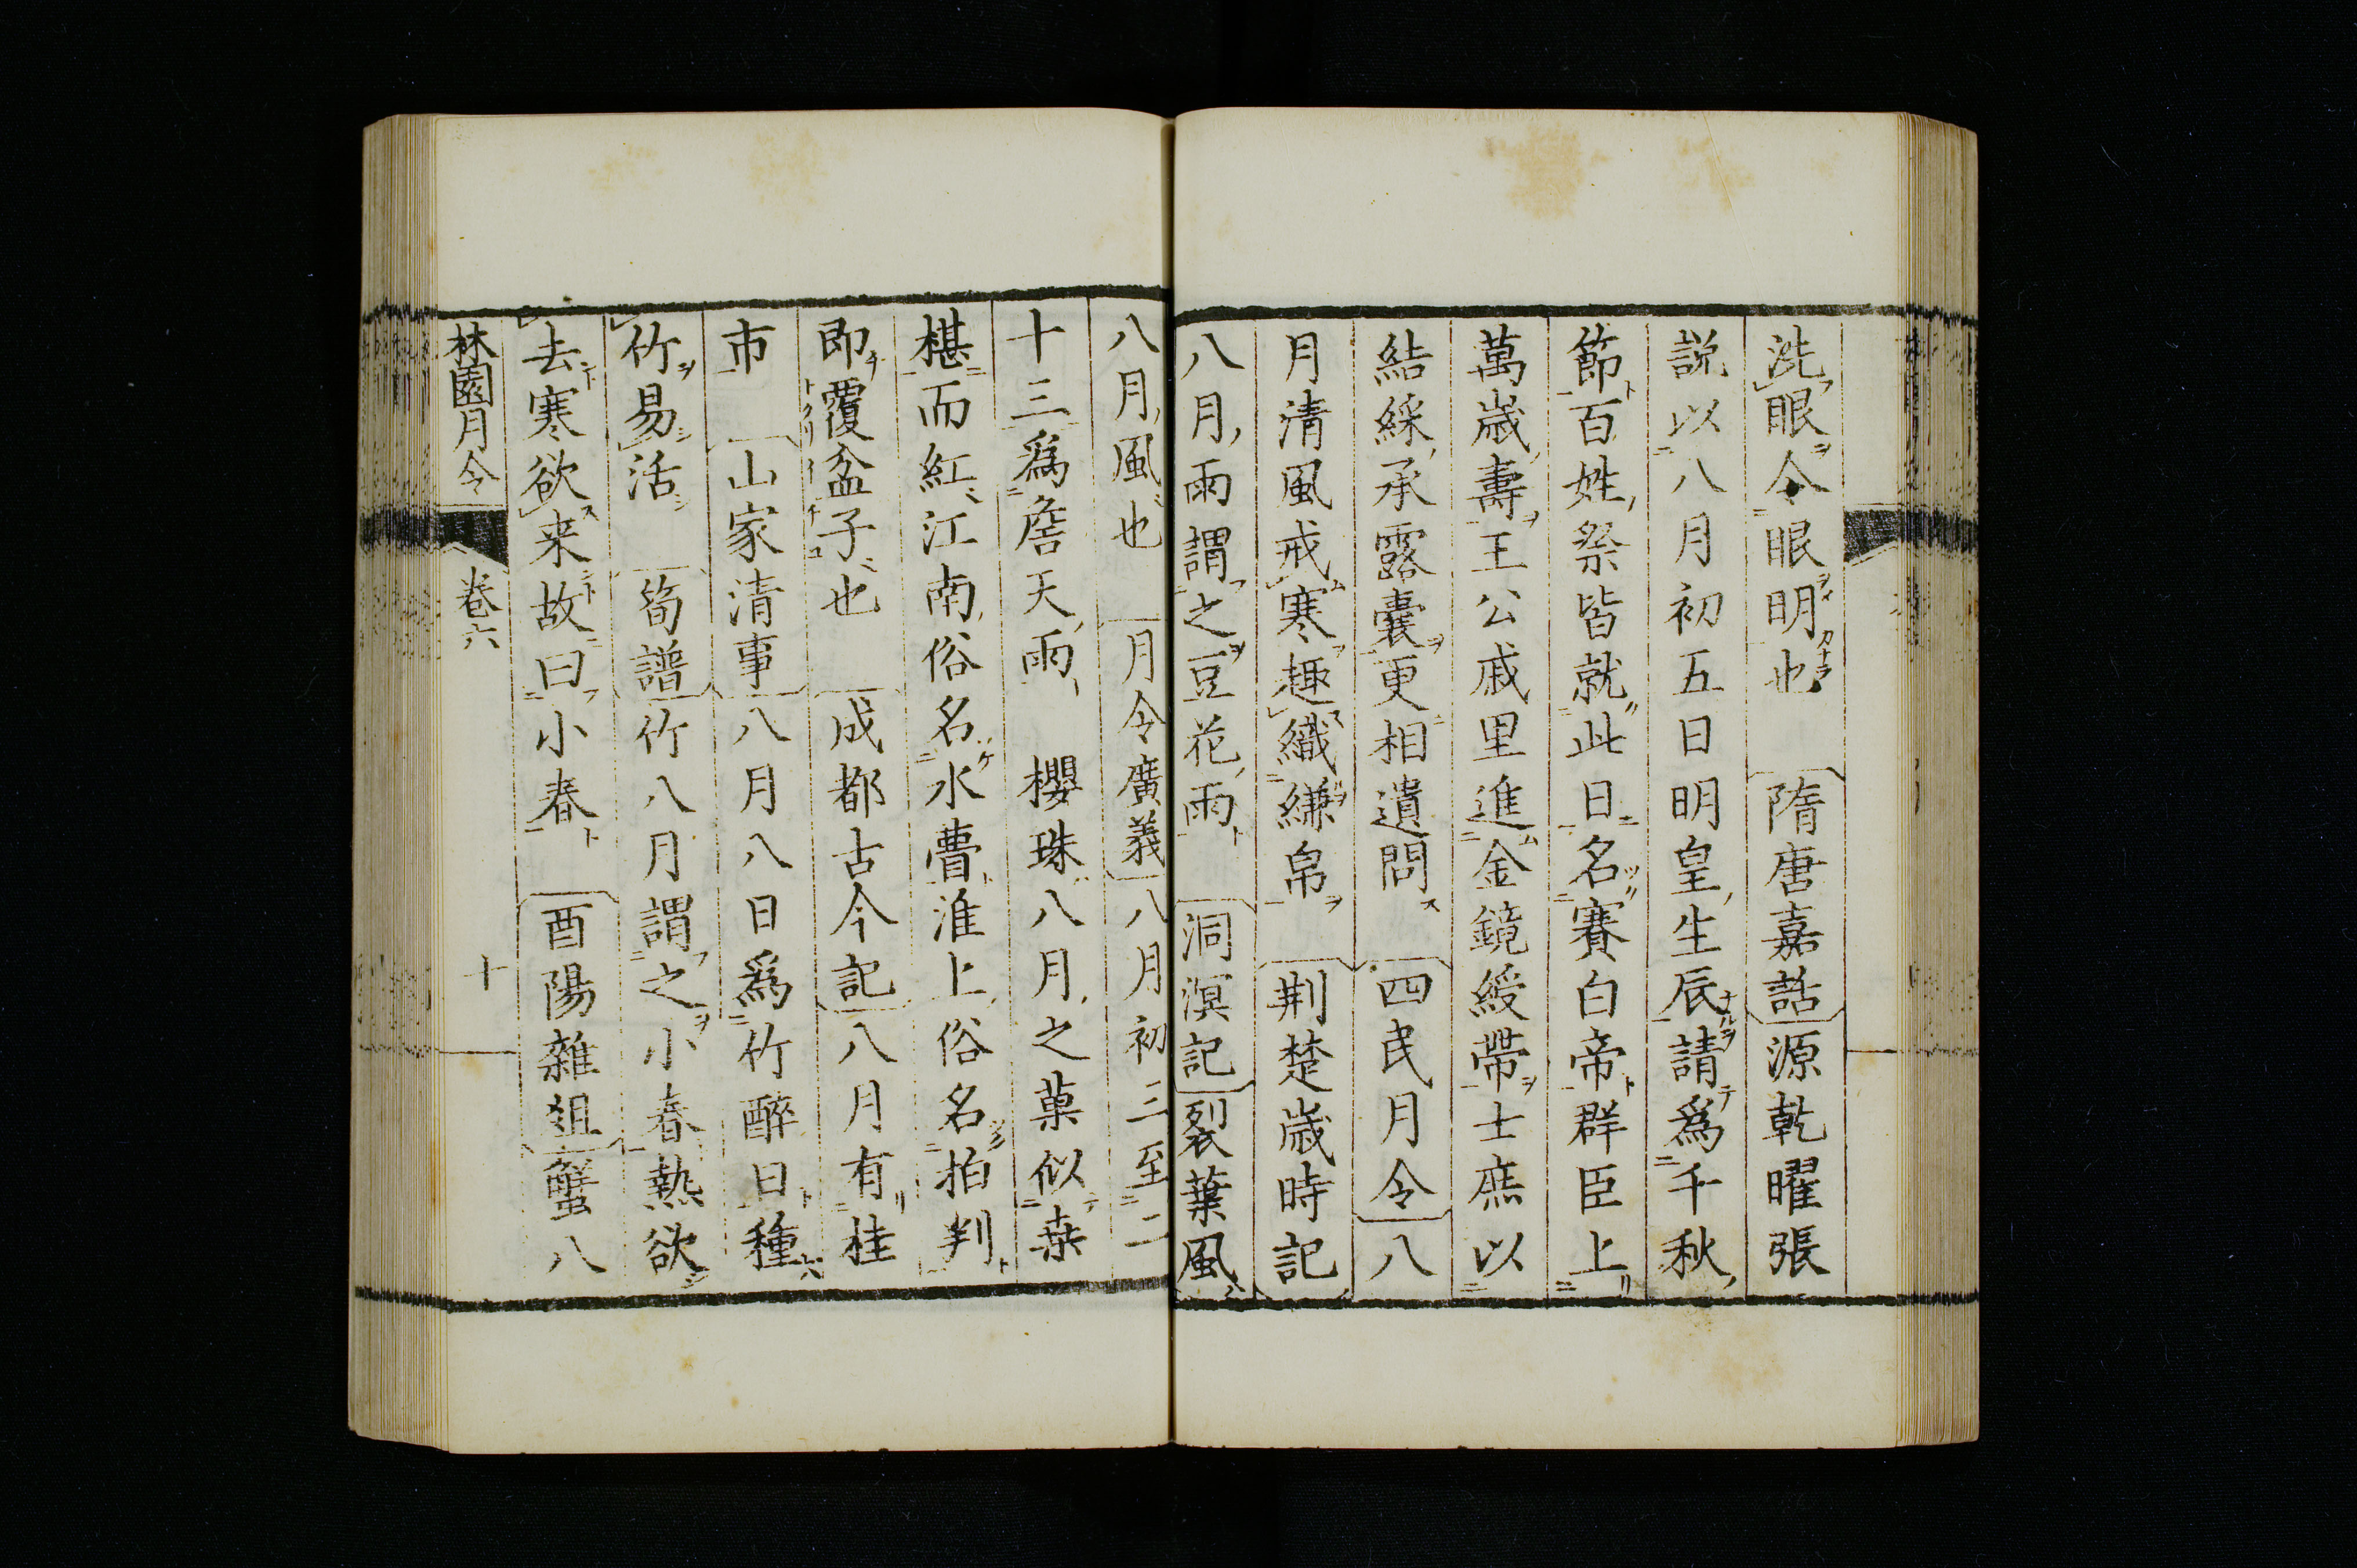 洗眼令眼明也　隋唐嘉話源乾曜張
説以八月初五日明皇生辰請爲千秋
節百姓祭皆就此日名賽白帝群臣上
萬歳壽王公戚里進金鏡綬帶士庶以
結綵承露囊更相遺問　四民月令八
月清風戒寒趣織縑帛　荆楚歳時記
八月雨謂之豆花雨　洞溟記裂葉風
八月風也　月令廣義八月初三至二
十三爲詹天雨　櫻珠八月之菓似桒
椹而紅江南俗名水蕾淮上俗名拍判
即覆盆子也　成都古今記八月有桂
市　山家清事八月八日爲竹醉日種
竹易活　筍譜竹八月謂之小春熱欲
去寒欲来故曰小春　酉陽雜俎蟹八
林園月令　卷六　十